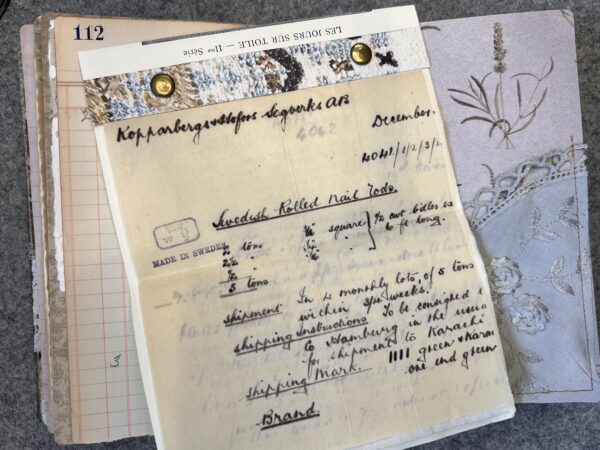 112
LES JOURS SUR TOILE — 11me Série
Kopparbergs & Hofors Sågverks AB
4042
December.
4041/1/2/3/4
Swedish Rolled Nail Rods.
MADE IN SWEDEN
2 tons ¼ square ½ cwt bdles ex
2½ " 6 ft long.
½ "
5 tons
Shipment In 4 monthly lots of 5 tons
within 3/4 weeks.
Shipping Instructions To be consigned
to Hamburg in the usua
for shipment to Karachi
Shipping Mark. 1111 green & Karac
one end green
Brand.